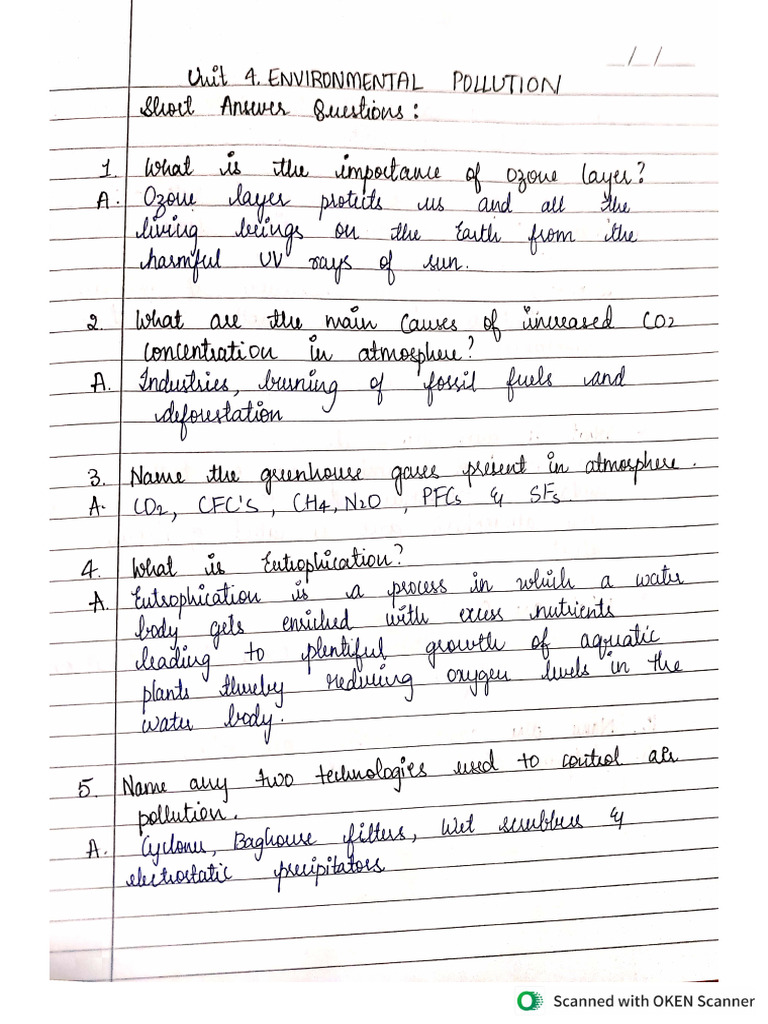 _/_/__
Unit 4. ENVIRONMENTAL POLLUTION
Short Answer Questions:
1. What is the importance of ozone layer?
A. Ozone layer protects us and all the
living beings on the Earth from the
harmful UV rays of sun.
2. What are the main causes of increased CO2
concentration in atmosphere?
A. Industries, burning of fossil fuels and
deforestation
3. Name the greenhouse gases present in atmosphere.
A. CO2, CFC'S, CH4, N2O, PFCs & SFs
4. What is Eutrophication?
A. Eutrophication is a process in which a water
body gets enriched with excess nutrients
leading to plentiful growth of aquatic
plants thereby reducing oxygen levels in the
water body.
5. Name any two technologies used to control air
pollution.
A. Cyclones, Baghouse filters, Wet scrubbers &
electrostatic precipitators
Scanned with OKEN Scanner